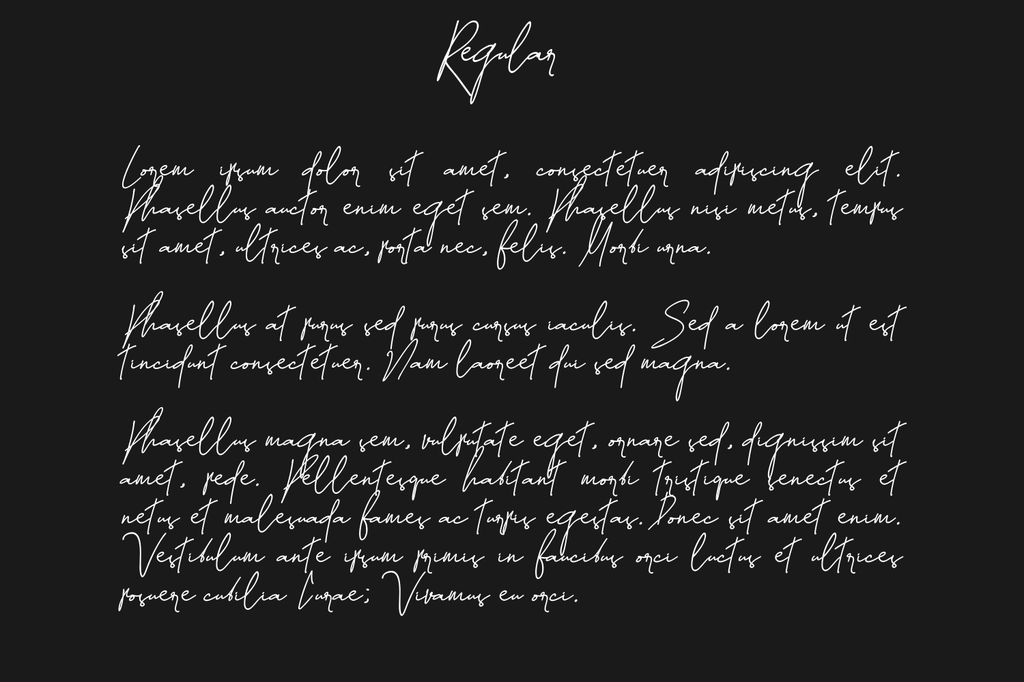 Regular
Lorem ipsum dolor sit amet, consectetuer adipiscing elit.
Phasellus auctor enim eget sem. Phasellus nisi metus, tempus
sit amet, ultrices ac, porta nec, felis. Morbi urna.
Phasellus at purus sed purus cursus iaculis. Sed a lorem ut est
tincidunt consectetuer. Nam laoreet dui sed magna.
Phasellus magna sem, vulputate eget, ornare sed, dignissim sit
amet, pede. Pellentesque habitant morbi tristique senectus et
netus et malesuada fames ac turpis egestas. Donec sit amet enim.
Vestibulum ante ipsum primis in faucibus orci luctus et ultrices
posuere cubilia Curae; Vivamus eu orci.